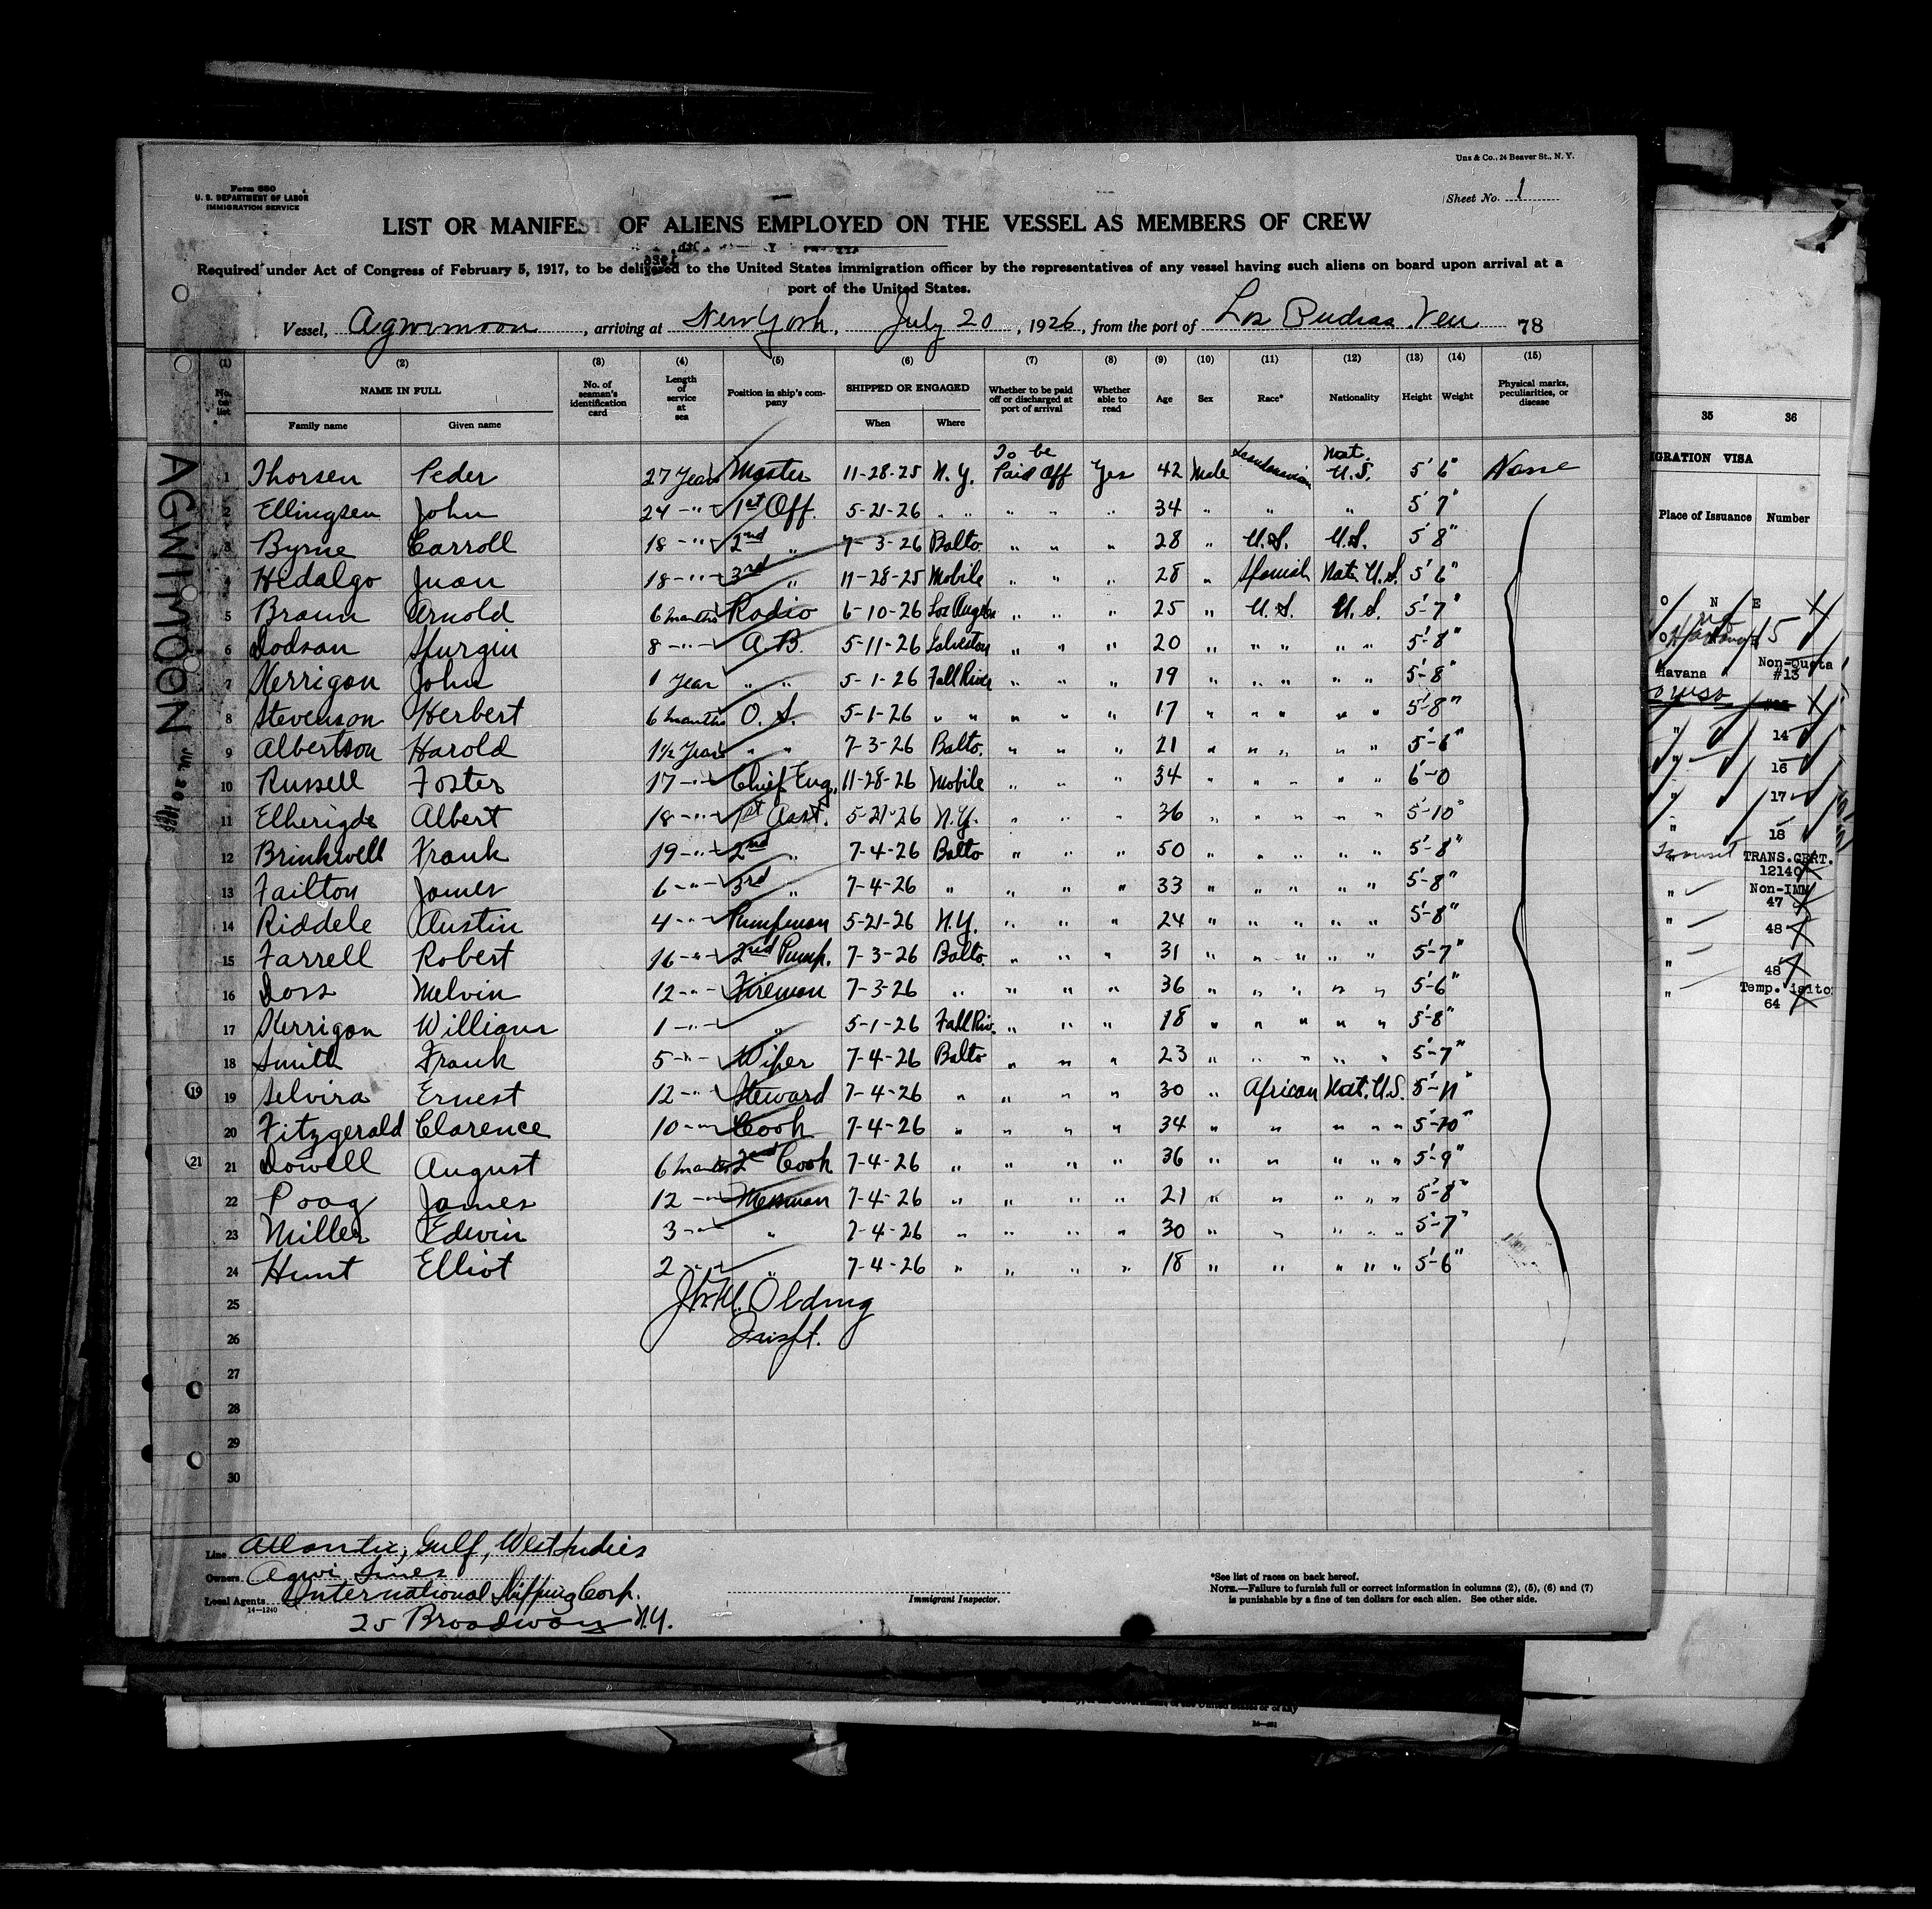 Uns & Co., 24 Beaver St., N. Y.
Form 680
U. S. DEPARTMENT OF LABOR
IMMIGRATION SERVICE
Sheet No. 1
LIST OR MANIFEST OF ALIENS EMPLOYED ON THE VESSEL AS MEMBERS OF CREW
Required under Act of Congress of February 5, 1917, to be delivered to the United States immigration officer by the representatives of any vessel having such aliens on board upon arrival at a
port of the United States.
Vessel, Agwimoon, arriving at New York, July 20, 1926, from the port of Los Piedras Ven. 78
(1) (2) (3) (4) (5) (6) (7) (8) (9) (10) (11) (12) (13) (14) (15)
No. on list NAME IN FULL Family name Given name No. of seaman's identification card Length of service at sea Position in ship's company SHIPPED OR ENGAGED When Where Whether to be paid off or discharged at port of arrival Whether able to read Age Sex Race* Nationality Height Weight Physical marks, peculiarities, or disease
1 Thorsen Peder 27 Years Master 11-28-25 N.Y. To be Paid Off Yes 42 Male Scandinavian Nat. U.S. 5' 6" None
2 Ellingsen John 24 -"- 1st Off. 5-21-26 " " " " " 34 " " " 5' 7"
3 Byrne Carroll 18 -"- 2nd " 7-3-26 Balto. " " " 28 " U.S. U.S. 5' 8"
4 Hidalgo Juan 18 -"- 3rd " 11-28-25 Mobile " " " 28 " Spanish Nat. U.S. 5' 6"
5 Braun Arnold 6 months Radio 6-10-26 Los Angeles " " " 25 " U.S. U.S. 5'-7"
6 Dodson Spurgin 8 -"- A.B. 5-11-26 Galveston " " " 20 " " " " " 5'-8"
7 Kerrigan John 1 Year " " 5-1-26 Fall River " " " 19 " " " " " 5'-8"
8 Stevenson Herbert 6 months O. S. 5-1-26 " " " " " 17 " " " " " 5'-8"
9 Albertson Harold 1½ Years " " 7-3-26 Balto. " " " 21 " " " " " 5'-6"
10 Russell Foster 17 -"- Chief Eng. 11-28-26 Mobile " " " 34 " " " " " 6'-0
11 Elherigde Albert 18 -"- 1st Asst. 5-21-26 N.Y. " " " 36 " " " " " 5'-10"
12 Brinkwell Frank 19 -"- 2nd " 7-4-26 Balto " " " 50 " " " " " 5'-8"
13 Failton James 6 -"- 3rd " 7-4-26 " " " " 33 " " " " " 5'-8"
14 Riddele Austin 4 -"- Pumpman 5-21-26 N.Y. " " " 24 " " " " " 5'-8"
15 Farrell Robert 16 -"- 2nd Pump. 7-3-26 Balto. " " " 31 " " " " " 5'-7"
16 Doss Melvin 12 -"- Fireman 7-3-26 " " " " 36 " " " " " 5'-6"
17 Kerrigan William 1 -"- " 5-1-26 Fall Riv. " " " 18 " " " " " 5'-8"
18 Smith Frank 5 -"- Wiper 7-4-26 Balto " " " 23 " " " " " 5'-7"
(19) 19 Selvira Ernest 12 -"- Steward 7-4-26 " " " " 30 " African Nat. U.S. 5'-11"
20 Fitzgerald Clarence 10 -"- Cook 7-4-26 " " " " 34 " " " " " 5'-10"
(21) 21 Dowell August 6 months 2nd Cook 7-4-26 " " " " 36 " " " " " 5'-9"
22 Poag James 12 -"- Messman 7-4-26 " " " " 21 " " " " " 5'-8"
23 Miller Edwin 3 -"- " 7-4-26 " " " " 30 " " " " " 5'-7"
24 Hunt Elliot 2 -"- " 7-4-26 " " " " 18 " " " " " 5'-6"
25 Olding
26
27
28
29
30
AGWIMOON JUL 20 1926
Line Atlantic, Gulf, West Indies
Owners Agwi Lines
Local Agents International Shipping Corp.
14—1240
25 Broadway N.Y.
Immigrant Inspector.
*See list of races on back hereof.
NOTE.—Failure to furnish full or correct information in columns (2), (5), (6) and (7)
is punishable by a fine of ten dollars for each alien. See other side.
35 36
IGRATION VISA
Place of Issuance Number
O N E
Havana Non-Quota #13
" 14
" 16
" 17
" 18
Transit TRANS.CERT. 12140
" Non-IMM 47
" 48
" 48
" Temp. 64